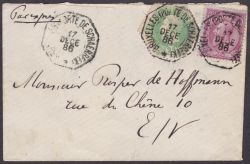 Par exprès
BRUXELLES (PORTE DE SCHAERBEEK)
17
DECE
88
BRUXELLES (PORTE DE SCHAERBEEK)
17
DECE
88
Monsieur Prosper de Hoffmann
rue du Chêne 10
E/V